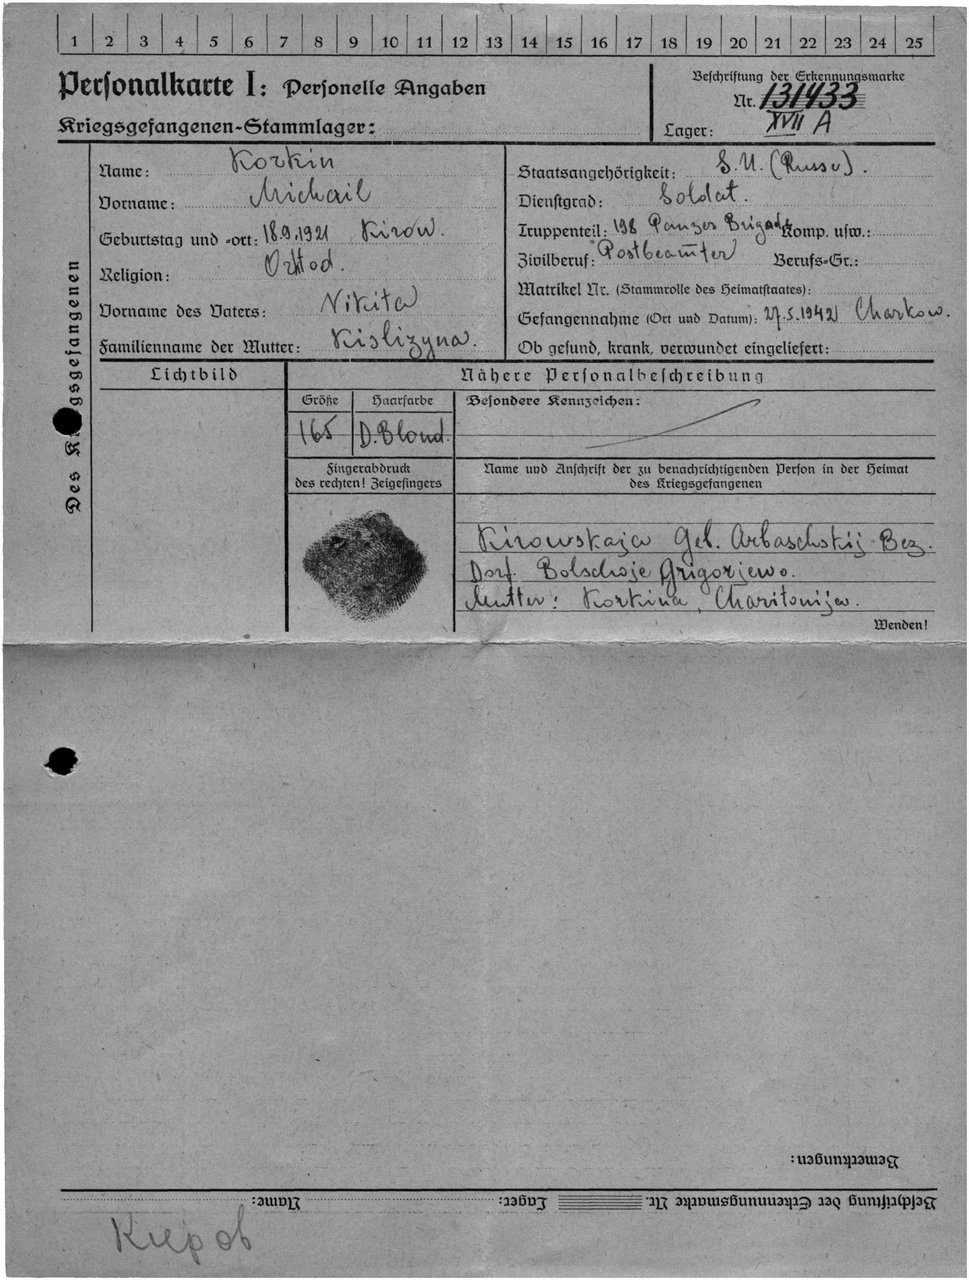 1 2 3 4 5 6 7 8 9 10 11 12 13 14 15 16 17 18 19 20 21 22 23 24 25
Personalkarte I: Personelle Angaben
Kriegsgefangenen-Stammlager:
Beschriftung der Erkennungsmarke
Nr. 131433
Lager: XVII A
Des Kriegsgefangenen
Name: Korkin
Vorname: Michail
Geburtstag und -ort: 18.9.1921 Kirow.
Religion: Orthod.
Vorname des Vaters: Nikita
Familienname der Mutter: Kislizyna.
Staatsangehörigkeit: S.U. (Russe).
Dienstgrad: Soldat.
Truppenteil: 198 Panzer Brigade Komp. usw.:
Zivilberuf: Postbeamter Berufs-Gr.:
Matrikel Nr. (Stammrolle des Heimatstaates):
Gefangennahme (Ort und Datum): 27.5.1942 Charkow.
Ob gesund, krank, verwundet eingeliefert:
Lichtbild
Nähere Personalbeschreibung
Größe
Haarfarbe
Besondere Kennzeichen:
165
D.Blond.
Fingerabdruck
des rechten! Zeigefingers
Name und Anschrift der zu benachrichtigenden Person in der Heimat
des Kriegsgefangenen
Kirowskaja Geb. Arbaschskij Bez.
Dorf. Bolschoje Grigorjewo.
Mutter: Korkina, Charitonija.
Wenden!
Bemerkungen:
Beschriftung der Erkennungsmarke Nr. Lager: Name:
Киров